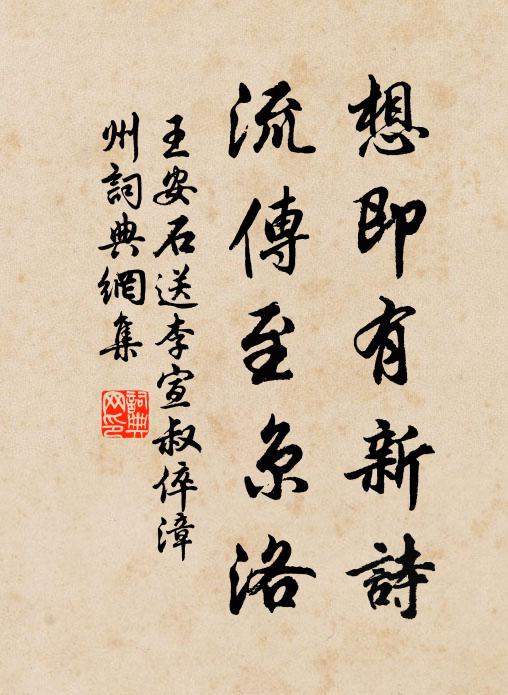 想即有新詩
流傳至京洛
王安石送李宣叔倅漳
州詞典網集
詞典网印